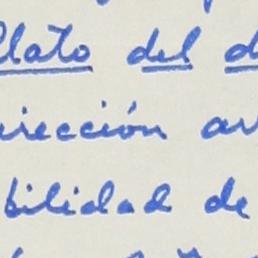 Plato del d
irección ar
bilidad de